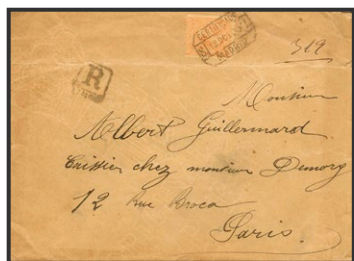 R
319
Monsieur
Albert Guillermard
Caissier chez monsieur Demorg
12 Rue Broca
Paris.